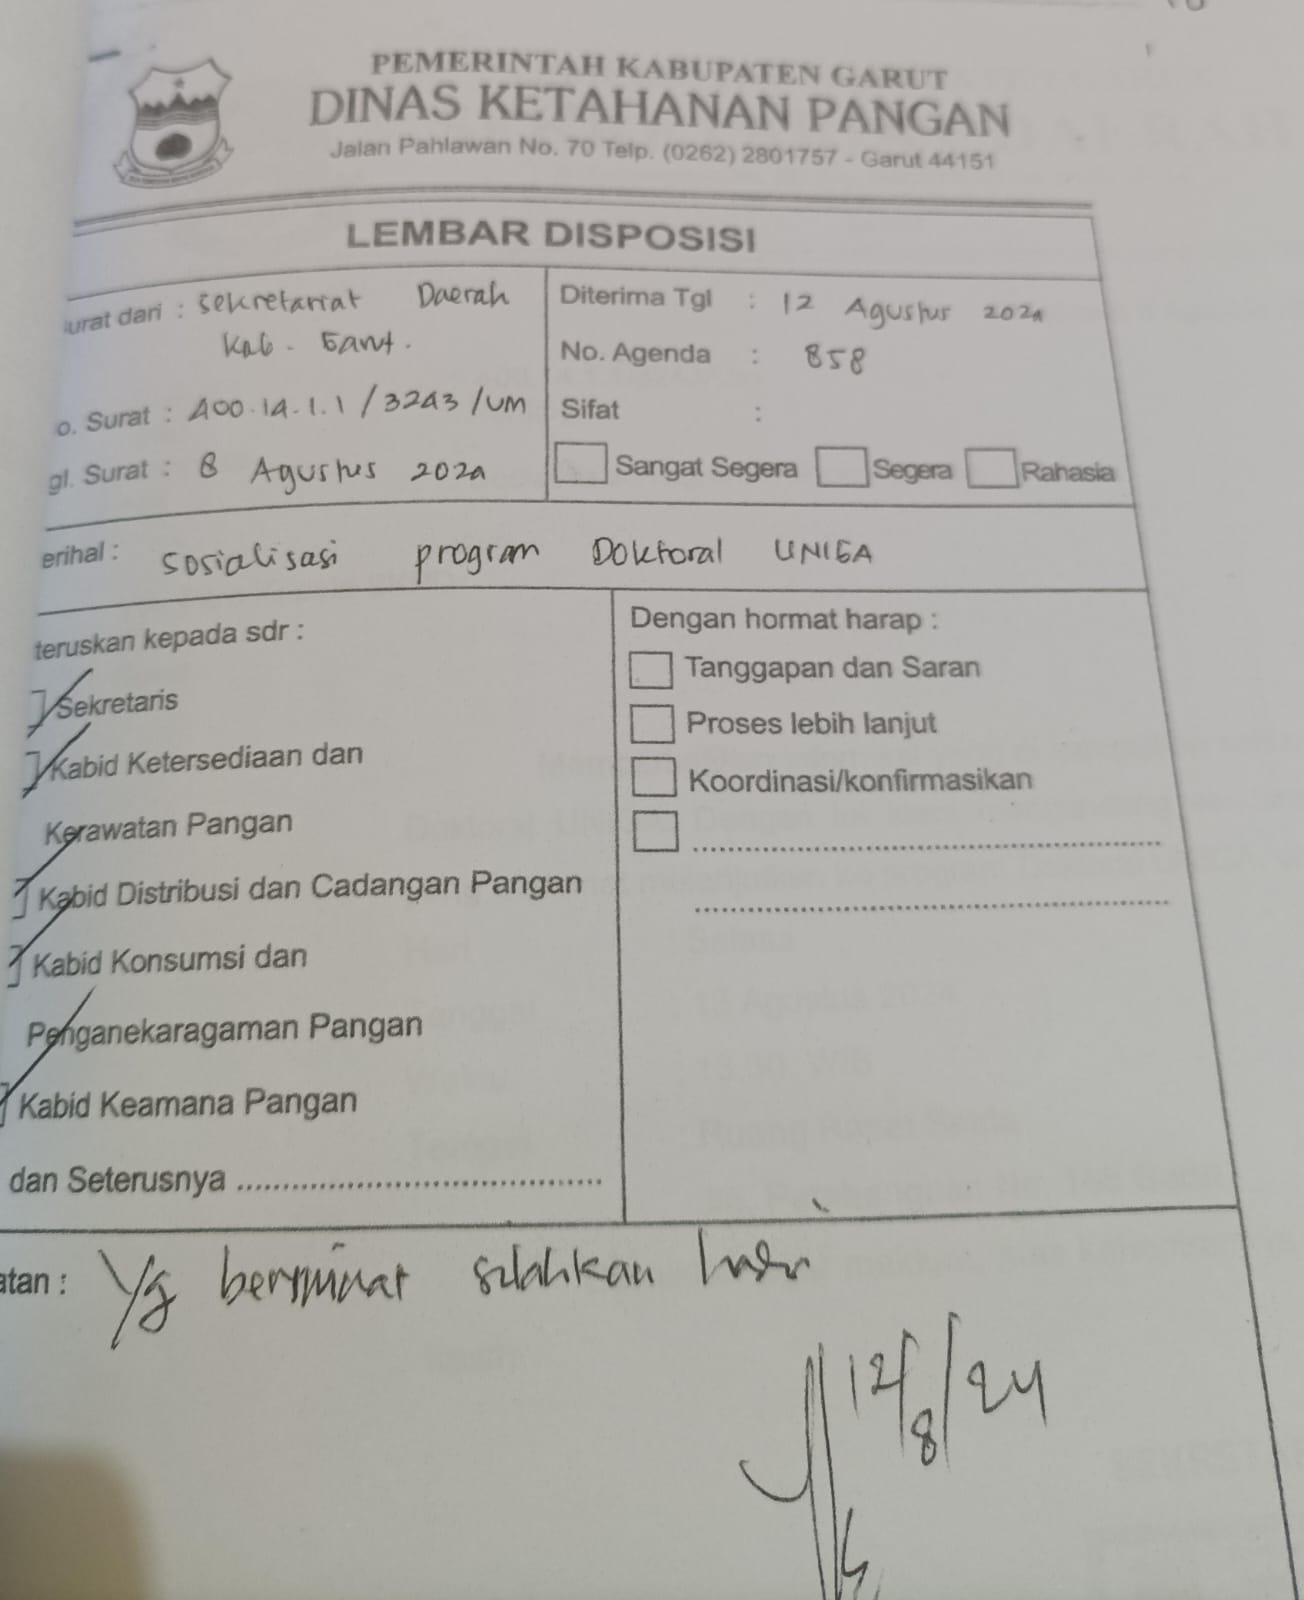 PEMERINTAH KABUPATEN GARUT
DINAS KETAHANAN PANGAN
Jalan Pahlawan No. 70 Telp. (0262) 2801757 - Garut 44151
LEMBAR DISPOSISI
urat dari : Sekretariat Daerah
Kab. Garut.
o. Surat : 400.14.1.1/3243/UM
gl. Surat : 8 Agustus 2024
Diterima Tgl : 12 Agustus 2024
No. Agenda : 858
Sifat :
Sangat Segera Segera Rahasia
erihal : Sosialisasi program Doktoral UNIGA
teruskan kepada sdr :
Sekretaris
Kabid Ketersediaan dan
Kerawatan Pangan
Kabid Distribusi dan Cadangan Pangan
Kabid Konsumsi dan
Penganekaragaman Pangan
Kabid Keamana Pangan
dan Seterusnya ........................................
Dengan hormat harap :
Tanggapan dan Saran
Proses lebih lanjut
Koordinasi/konfirmasikan
atan : Yg berminat silahkan hadir
12/8/24